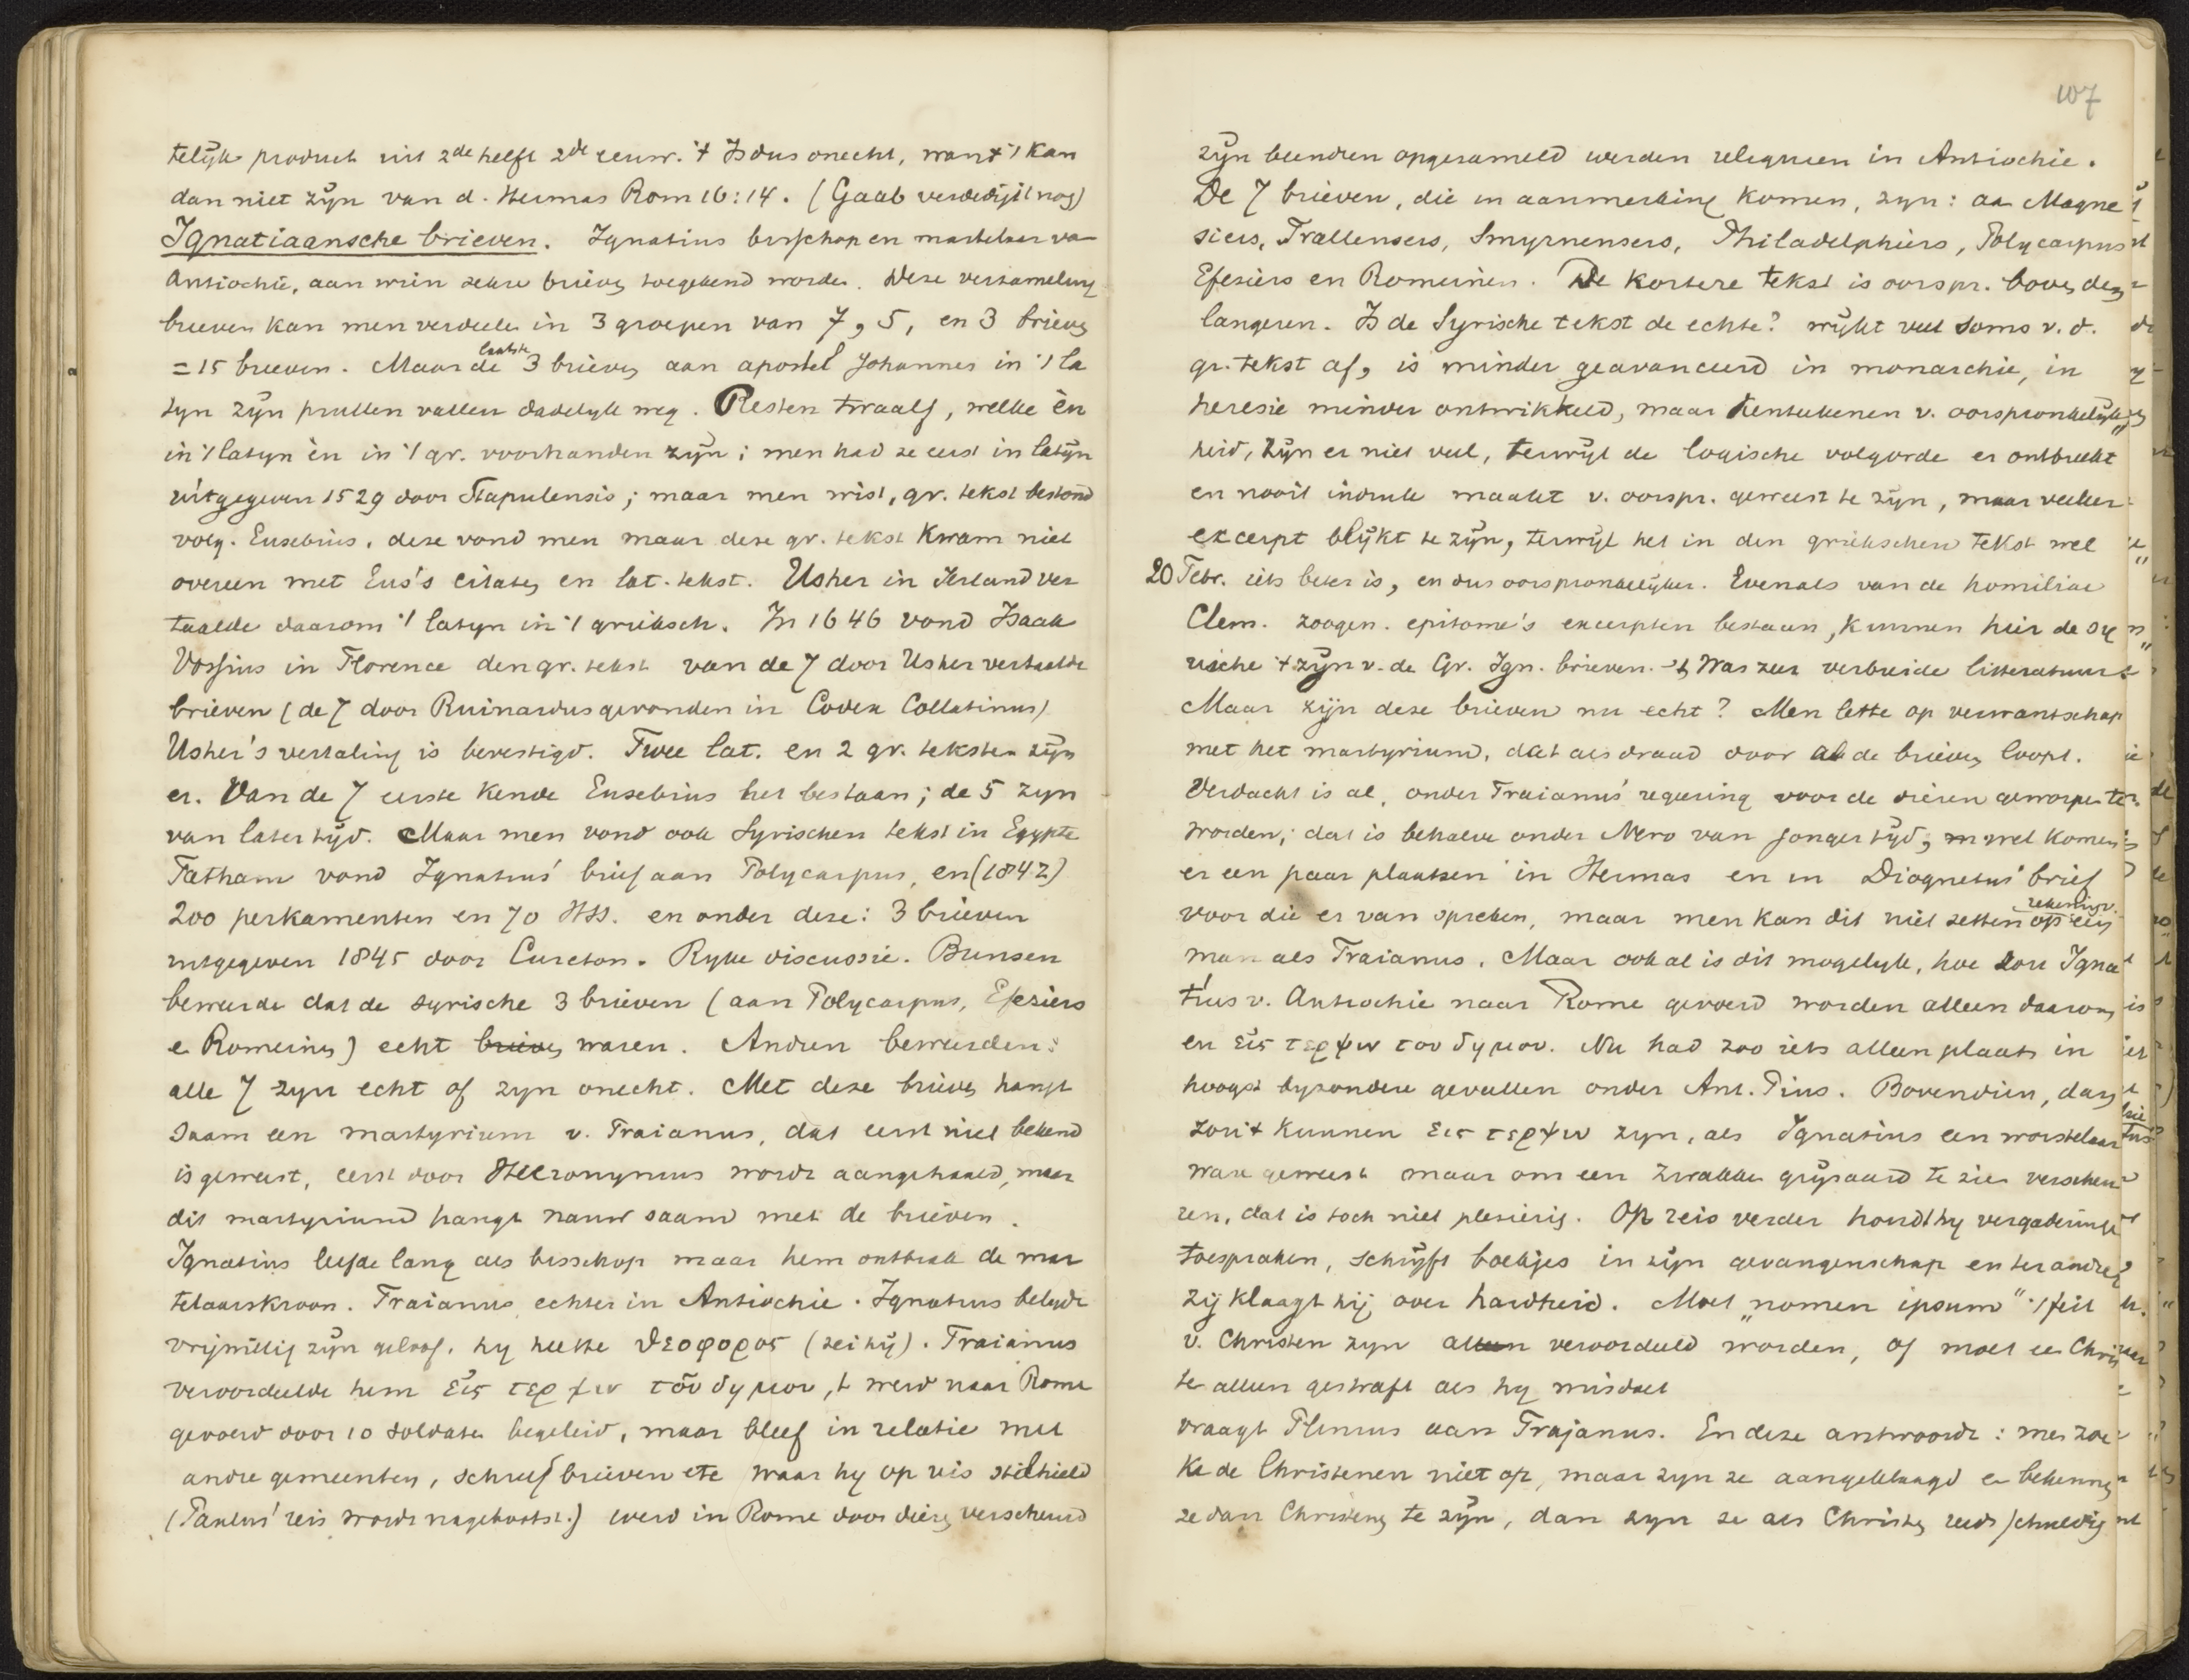 telijk product uit 2de helft 2de eeuw. 't Is dus onecht, want 't kan
dan niet zijn van d. Hermas Rom 16:14. (Gaab verdedigt nog)
Ignatiaansche brieven. Ignatius bisschop en martelaar va
Antiochië, aan wien zekere brieven toegekend worden. Deze verzameling
brieven kan men verdeelen in 3 groepen van 7, 5, en 3 brieven
= 15 brieven. Maar de laatste 3 brieven aan apostel Johannes in 't la
tyn zijn prullen vallen dadelyk weg. Resten twaalf, welke èn
in 't latyn èn in 't gr. voorhanden zijn; men had ze eerst in latijn
uitgegeven 1529 door Stapulensis; maar men wist, gr. tekst bestond
volg. Eusebius. deze vond men maar deze gr. tekst kwam niet
overeen met Eus's citaten en lat. tekst. Usher in Ierland ver
taalde daarom 't latyn in 't grieksch. In 1646 vond Isaak
Vossius in Florence den gr. tekst van de 7 door Usher vertaalde
brieven (de 7 door Ruinardus gevonden in Codex Collatinus)
Usher's vertaling is bevestigd. Twee lat. en 2 gr. teksten zijn
er. Van de 7 eerste kende Eusebius het bestaan; de 5 zyn
van later tijd. Maar men vond ook Syrischen tekst in Egypte
Tatham vond Ignatius' brief aan Polycarpus, en (1842)
200 perkamenten en 70 HSS. en onder deze: 3 brieven
uitgegeven 1845 door Cureton. Ryke discussie. Bunsen
beweerde dat de syrische 3 brieven (aan Polycarpus, Efeziers
e Romeinen) echt brieven waren. Andren beweerden:
alle 7 zyn echt of zyn onecht. Met deze brieven hangt
saam een martyrium v. Traianus, dat eerst niet bekend
is geweest, eerst door Hieronymus wordt aangehaald, maar
dit martyrium hangt nauw saam met de brieven.
Ignatius leefde lang als bisschop maar hem ontbrak de mar
telaarskroon. Traianus echter in Antiochie. Ignatius beleydt
vrijwillig zijn geloof. hy heette ϑεοφορος (zei hij). Traianus
veroordeelde hem εἰς τερψιν τοῦ δημου, h werd naar Rome
gevoerd door 10 soldaten begeleid, maar bleef in relatie met
andre gemeenten, schreef brieven etc waar hy op reis stilhield
(Paulus' reis wordt nagebootst.) werd in Rome door dieren verscheurd
107
zijn beendren opgezameld werden reliquieen in Antiochie.
De 7 brieven, die in aanmerking komen, zyn: aa Magne
siers, Trallensers, Smyrnensers, Philadelphiërs, Polycarpus
Efeziers en Romeinen. De kortere tekst is oorspr. boven den
langeren. Is de Syrische tekst de echte? wijkt veel soms v. d.
gr. tekst af, is minder geavanceerd in monarchie, in
heresie minder ontwikkeld, maar kenteekenen v. oorspronkelijk
heid, zijn er niet veel, terwijl de logische volgorde er ontbreekt
en nooit indruk maakt v. oorspr. geweest te zijn, maar veeleer
excerpt blijkt te zijn, terwijl het in den griekschen tekst wel
20 Febr. iets beter is, en dus oorspronkelijker. Evenals van de homiliae
Clem. zoogen. epitome's excerpten bestaan, kunnen hier de Sy
rische 't zijn v. de Gr. Ign. brieven. 't Was zeer verbreide litteratuur
Maar zijn deze brieven nu echt? Men lette op verwantschap
met het martyrium, dat als draad door al de brieven loopt.
Verdacht is al, onder Traianus' regeering voor de dieren geworpen te
worden; dat is behalve onder Nero van jonger tijd, wel komen
er een paar plaatsen in Hermas en in Diognetus' brief
voor die er van spreken, maar men kan dit niet zetten op rekening v. een
man als Traianus. Maar ook al is dit mogelyk, hoe zou Igna
tius v. Antiochie naar Rome gevoerd worden alleen daarom
en εἰς τερψιν του δημου. Nu had zoo iets alleen plaats in
hoogst byzondere gevallen onder Ant. Pius. Bovendien, dan
zou 't kunnen εις τερψιν zyn, als Ignatius een worstelaar
ware geweest maar om een zwakken grijsaard te zien verscheu
ren, dat is toch niet plezierig. Op reis verder houdt hy vergaderinge
toespraken, schrijft boekjes in zijn gevangenschap en ter andre
zij klaagt hij over hardheid. Moet „nomen ipsum" 't feit
v. Christen zyn alleen veroordeeld worden, of moet ee Chris
te alleen gestraft als hy misdoet
vraagt Plinius aan Trajanus. En deze antwoordt: men zoe
ke de Christenen niet op, maar zyn ze aangeklaagd e bekennen
ze dan Christenen te zijn, dan zyn ze als Christen reeds schuldig